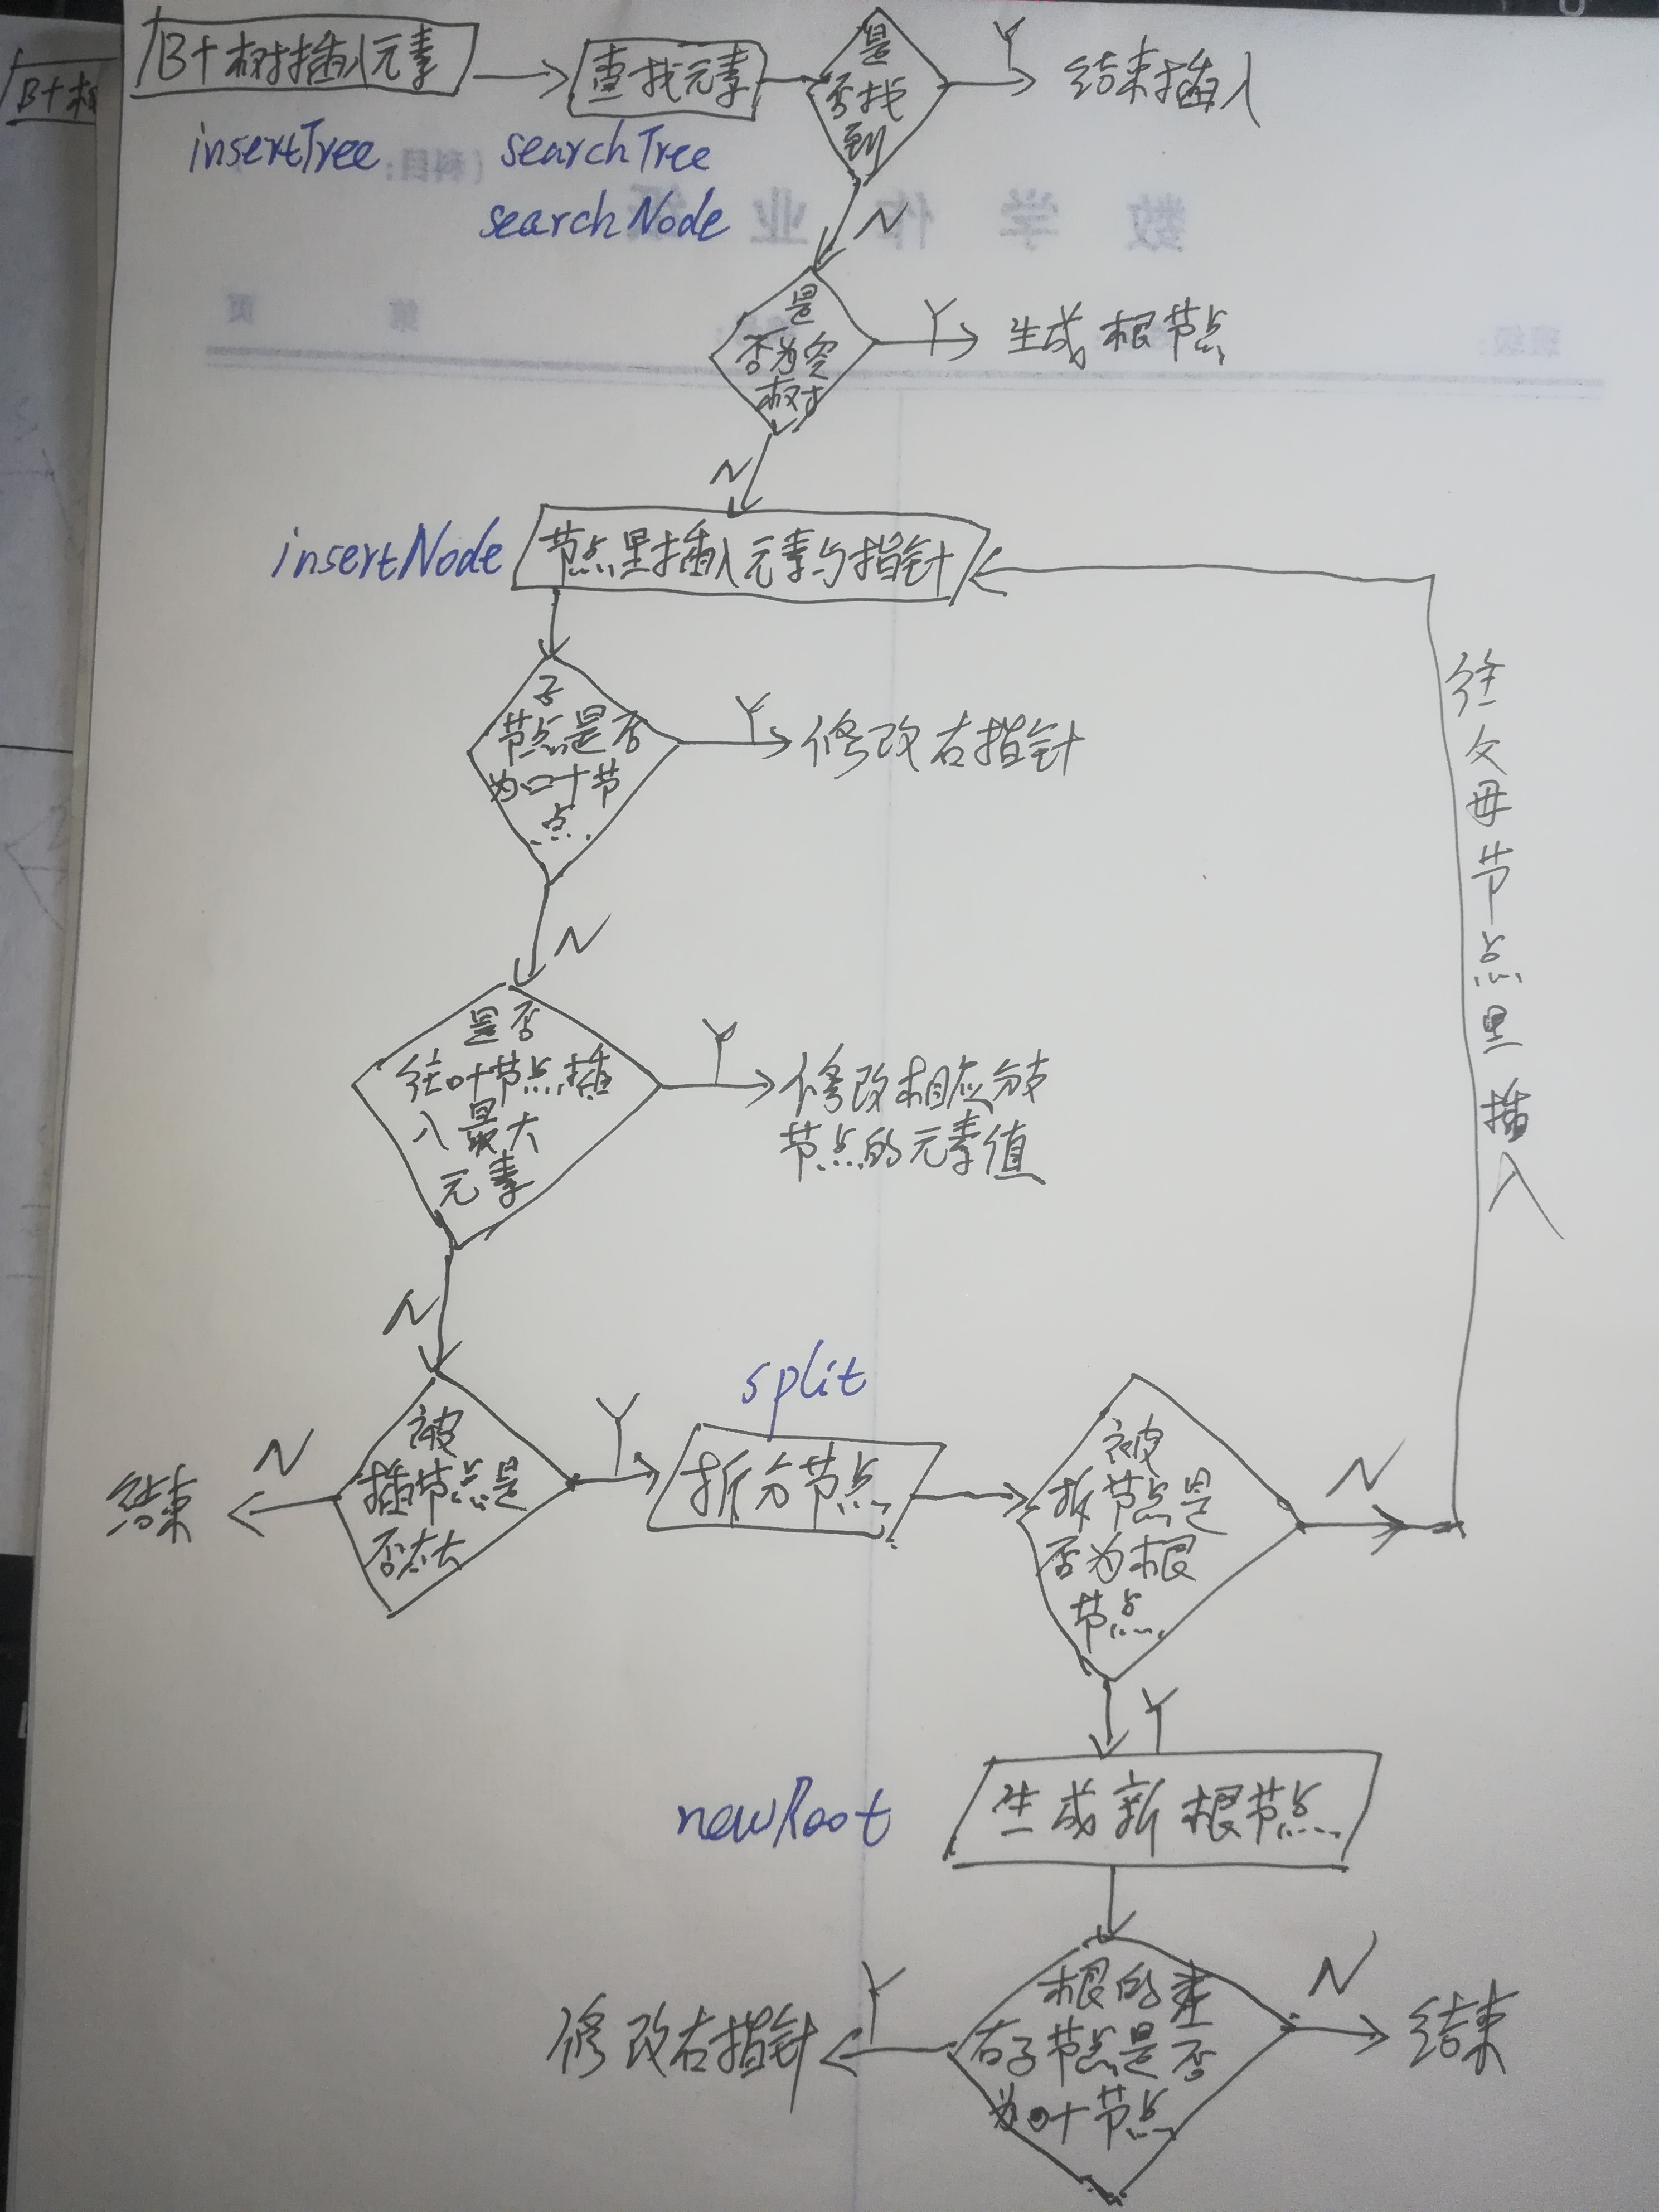 B+树插入元素
查找元素
是
否找
到
Y
结束插入
B+树
insertTree
searchTree
searchNode
科目:
数学作业纸
N
第 页
班级:
是
否为空
树
Y
生成根节点
N
insertNode
节点里插入元素与指针
子
节点是否
为叶节
点
Y
修改右指针
往父母节点里插入
N
是否
往叶节点插
入最大
元素
Y
修改相应分支
节点的元素值
N
split
被
插节点是
否太大
N
结束
Y
拆分节点
被
拆节点是
否为根
节点
N
Y
newRoot
生成新根节点
根的左
右子节点是否
为叶节点
Y
修改右指针
N
结束